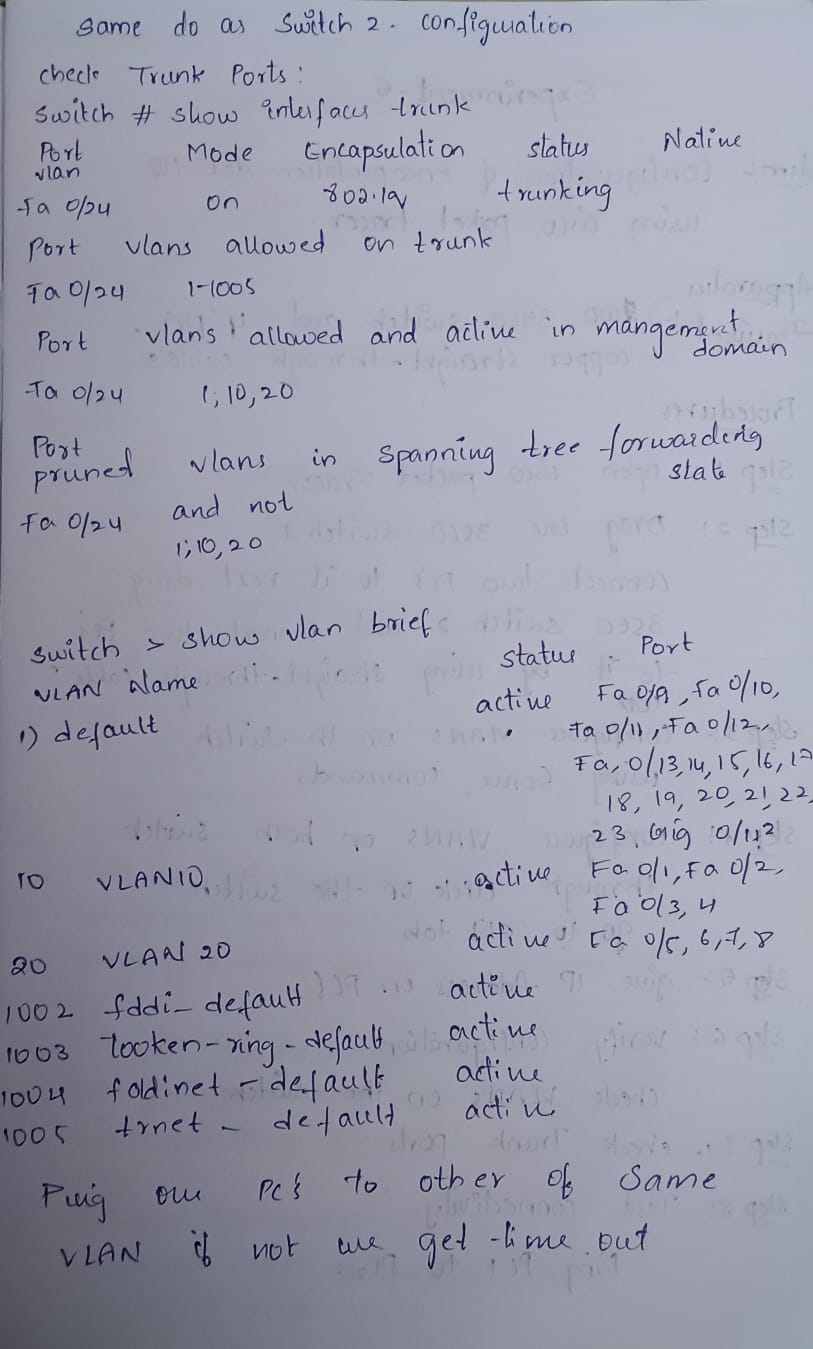 same do as Switch 2. configuration
check Trunk Ports:
Switch # show interfaces trunk
Port Mode Encapsulation status Native
vlan
Fa 0/24 on 802.1q trunking
Port vlans allowed on trunk
Fa 0/24 1-1005
Port vlans allowed and active in mangement
domain
Fa 0/24 1,10,20
Port vlans in spanning tree forwarding
pruned state
Fa 0/24 and not
1,10,20
switch > show vlan brief
VLAN Name status Port
1) default active Fa 0/9, Fa 0/10,
Fa 0/11, Fa 0/12,
Fa, 0/13, 14, 15, 16, 17
18, 19, 20, 21, 22,
23. Gig 0/1,2
10 VLAN10 active Fa 0/1, Fa 0/2,
Fa 0/3, 4
20 VLAN 20 active Fa 0/5, 6, 7, 8
1002 fddi-default active
1003 tooken-ring-default active
1004 foldinet-default active
1005 trnet-default active
Ping one PC's to other of same
VLAN if not we get time out